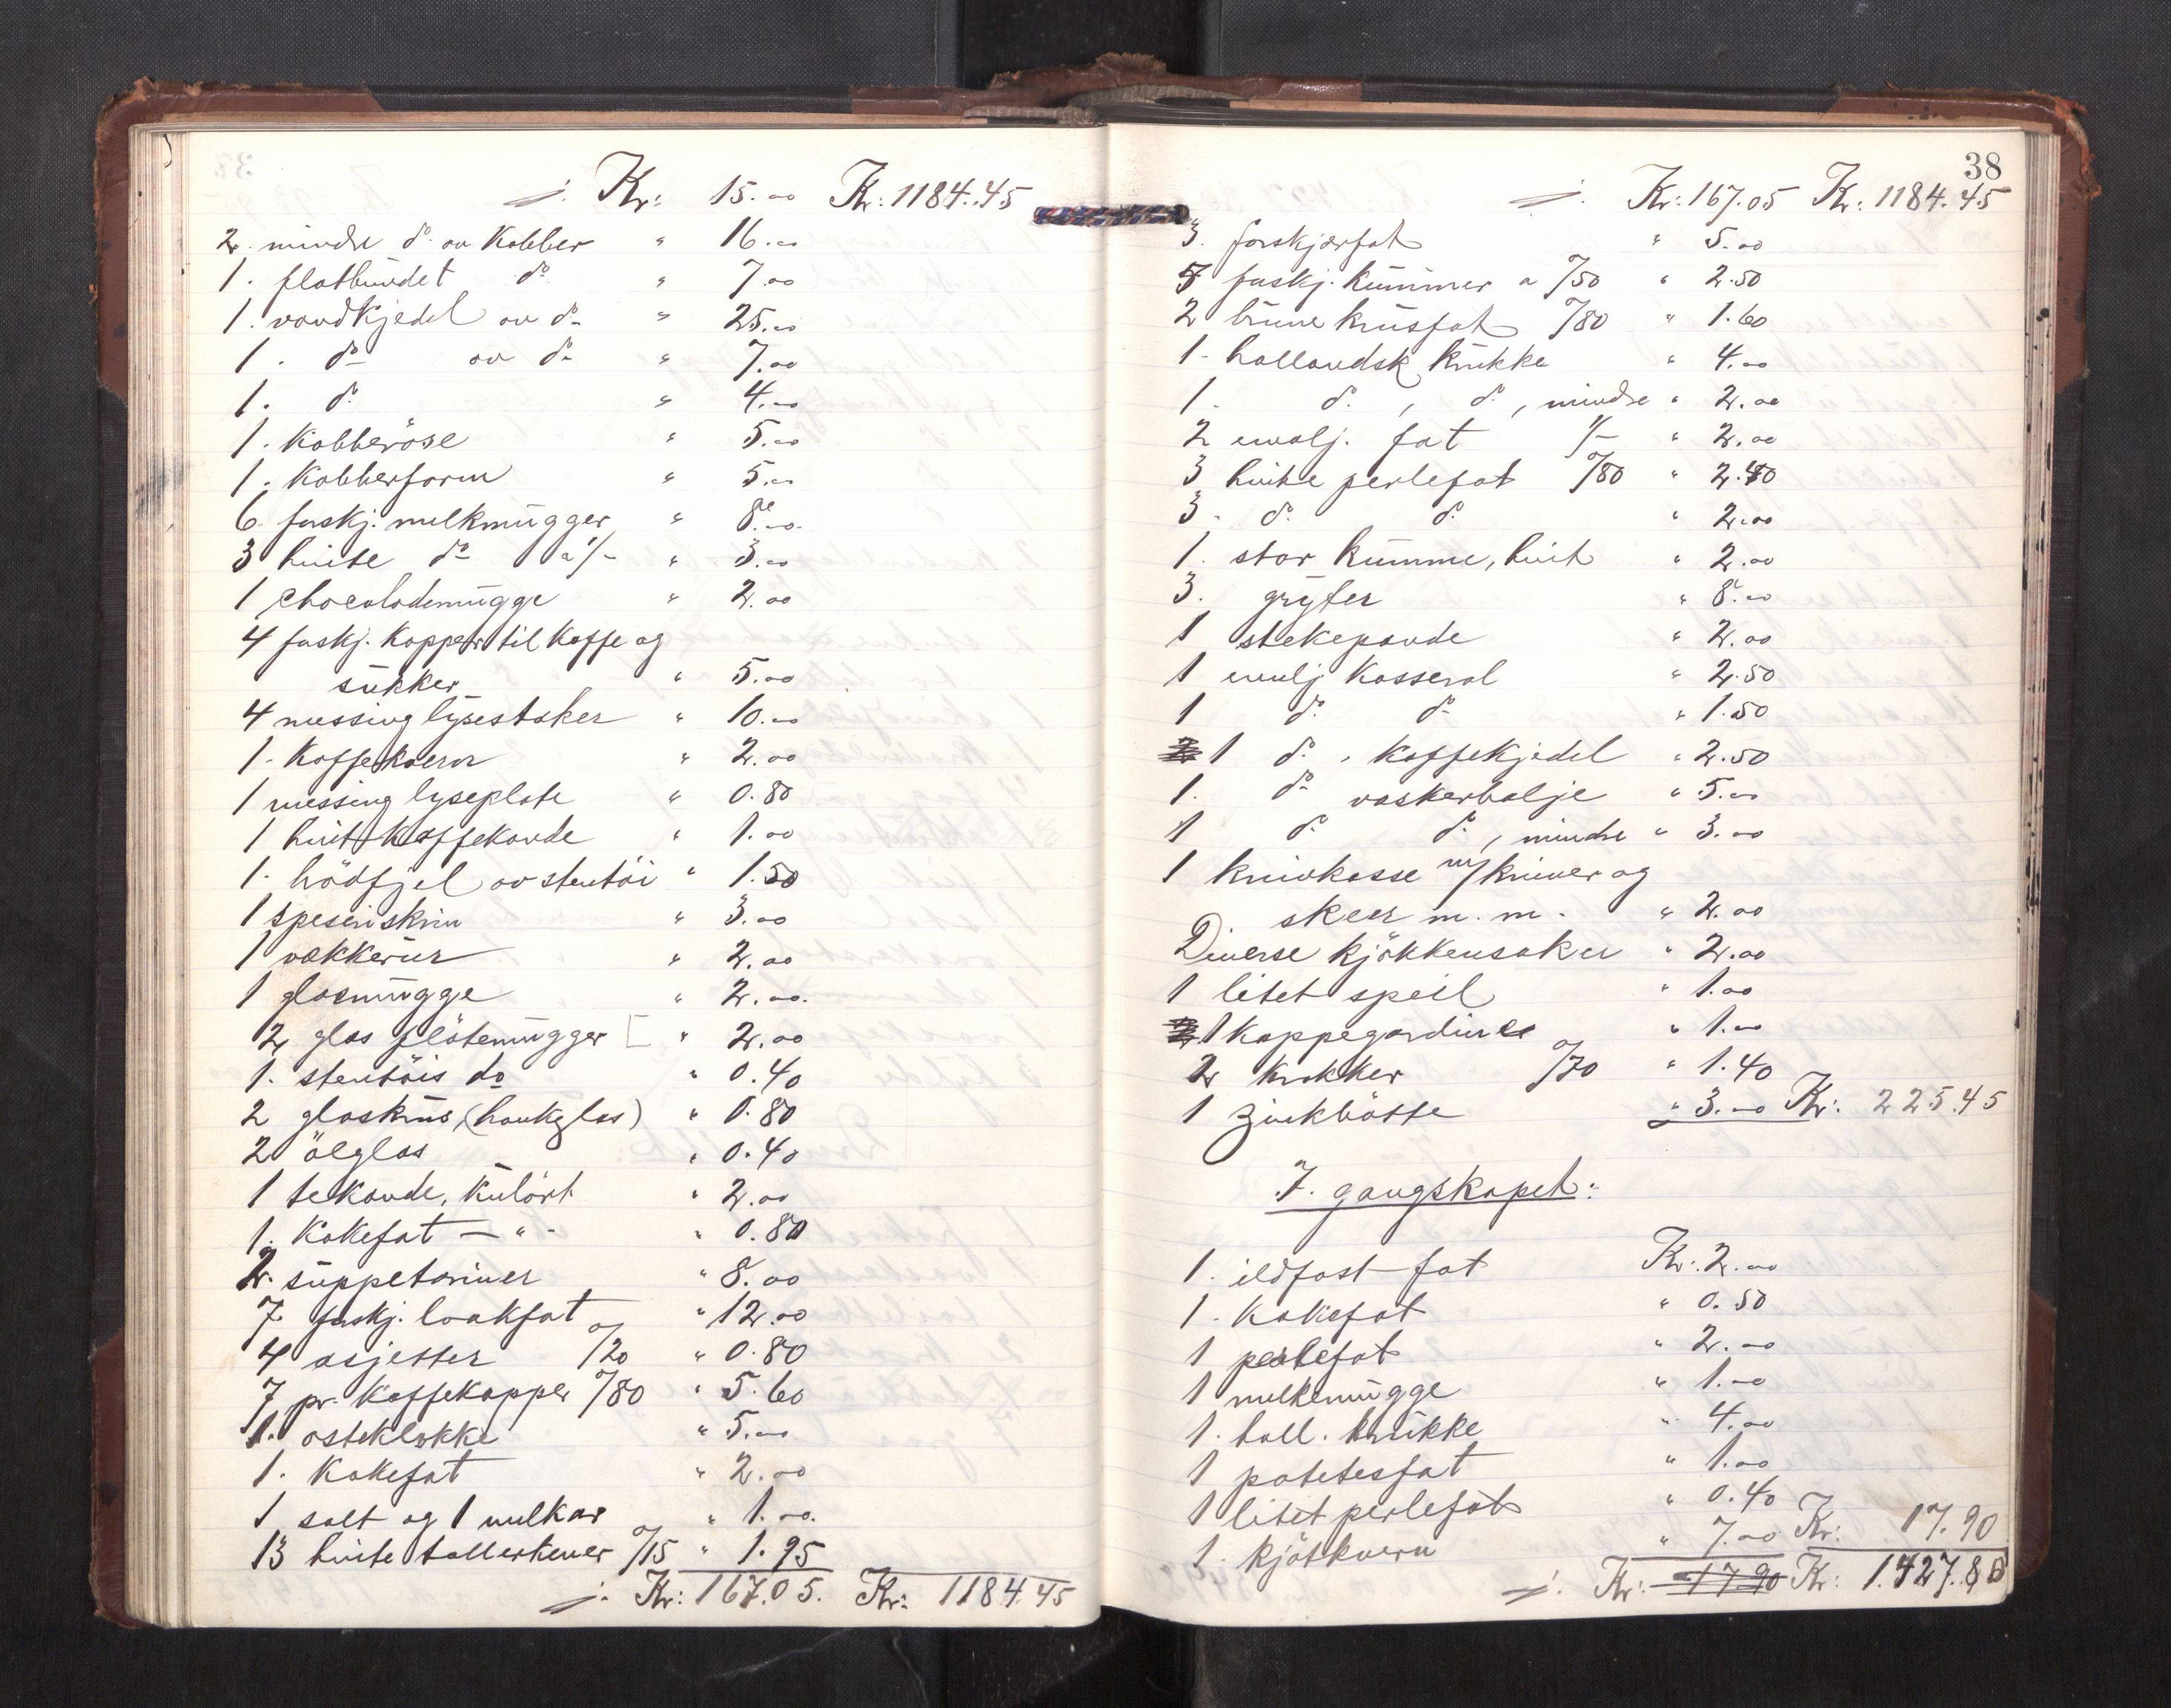 ./. Kr: 15.00 Kr: 1184.45
2. mindre do. av Kobber " 16.00
1. flatbundet do " 7.00
1. vandkjedel av do " 25.00
1. do av do " 7.00
1. do " 4.00
1. Kobberöse " 5.00
1. Kobberform " 5.00
6 forskj. melkmugger " 8.00
3 hvite do a 1/- " 3.00
1 chocolademugge " 2.00
4 forskj. Kopper til Kaffe og
sukker " 5.00
4 messing lysestaker " 10.00
1. Kaffekvern " 2.00
1 messing lyseplate " 0.80
1 hvit Kaffekande " 1.00
1. brödfjel av stentöi " 1.50
1 speseriskrin " 3.00
1 vækkerur " 2.00
1 glasmugge " 2.00.
2 glas flötemugger " 2.00
1. stentöis do " 0.40
2 glaskrus, (hankglas) " 0.80
2 ölglas " 0.40
1 tekande, kulört " 2.00
1. Kakefat — " - " 0.80
2. suppeteriner " 8.00
7 forskj. lankfat " 12.00
4 asjetter 0/20 " 0.80
7 pr. Kaffekopper 0/80 " 5.60
1. osteklokke " 5.00
1. Kakefat " 2.00
1 salt og 1 melkar " 1.00.
13 hvite tallerkener 0/15 " 1.95
./. Kr: 167.05. Kr: 1184.45
38
./. Kr: 167.05 Kr: 1184.45
3. forskjærfat " 5.00
5 forskj. Kummer a 0/50 " 2.50
2 brune krusfat 0/80 " 1.60
1. hollandsk krukke " 4.00
1. do. , do. , mindre " 2.00
2 emalj. fat 1/- " 2.00
3 hvite perlefat 0/80 " 2.40
3. do. do. " 2.00
1. stor Kumme, hvit " 2.00
3. gryter " 8.00
1 stekepande " 2.00
1 emalj Kasserol " 2.50
1 do. do " 1.50
1 do. , Kaffekjedel " 2.50
1. do vaskerbalje " 5.00
1 do. do. , mindre " 3.00
1 knivkasse m/ kniver og
skeer m. m. " 2.00
Diverse kjökkensaker " 2.00
1 litet speil " 1.00
1 Kappegardine " 1.00
2 krukker 0/70 " 1.40
1 zinkbötte " 3.00 Kr: 225.45
7. gangskapet:
1. ildfast fat Kr: 2.00
1. Kakefat " 0.50
1 perlefat " 2.00
1 melkemugge " 1.00
1. holl. krukke " 4.00
1 potetesfat " 1.00
1 litet perlefat " 0.40
1. kjötkvern " 7.00 Kr: 17.90
./. Kr: 17.90 Kr: 1.427.80